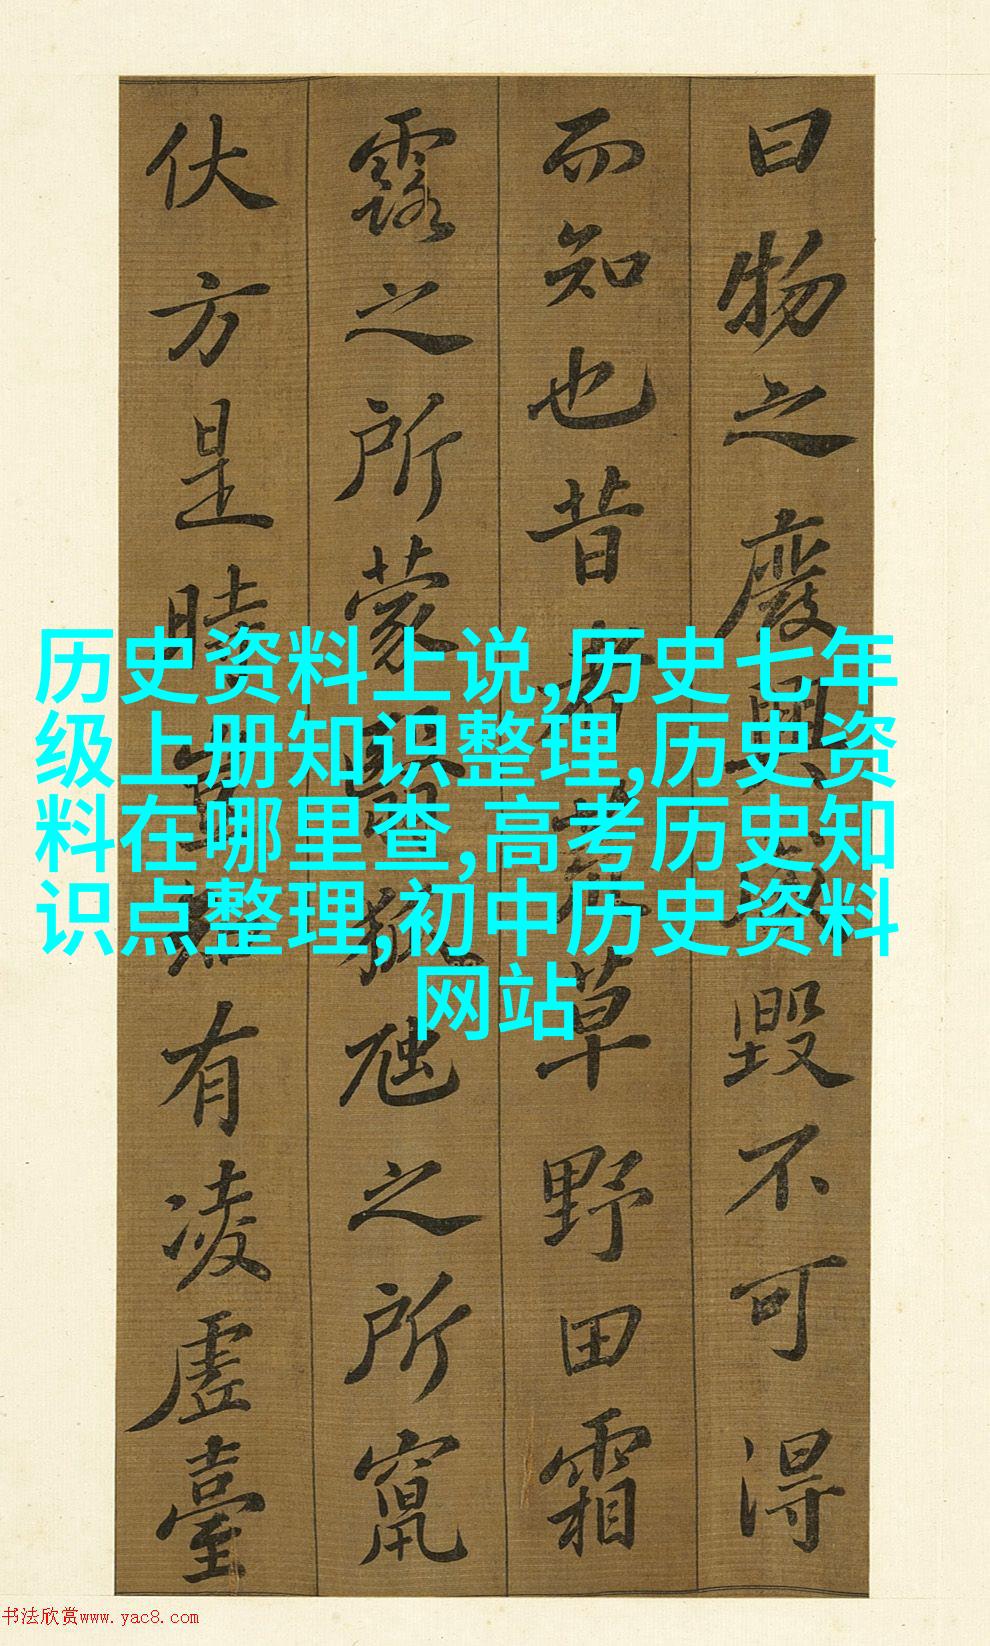 曰物之廢興成毀不可得
而知也昔者荒草野田霜
露之所蒙翳狐虺之所竄
伏方是時豈知有凌虛臺
历史资料上说,历史七年
级上册知识整理,历史资
料在哪里查,高考历史知
识点整理,初中历史资料
网站
书法欣赏www.yac8.com